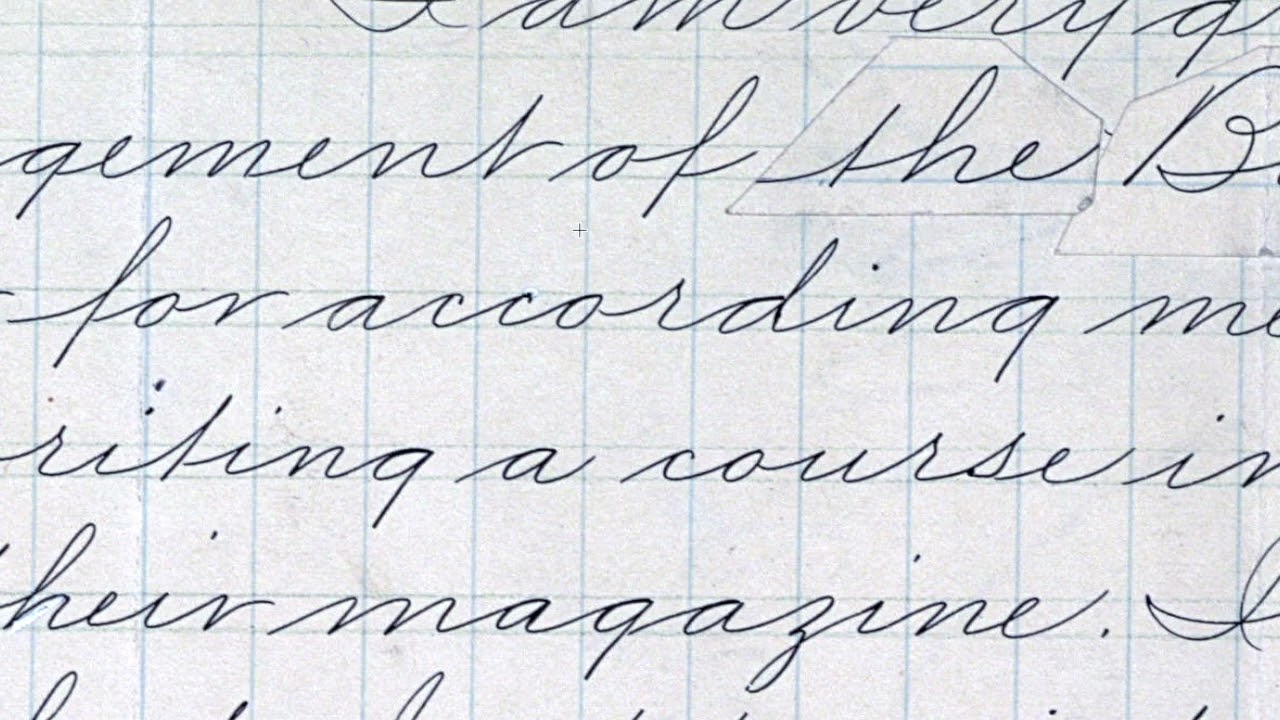 I am very g
gement of the B
for according me
riting a course in
their magazine. I